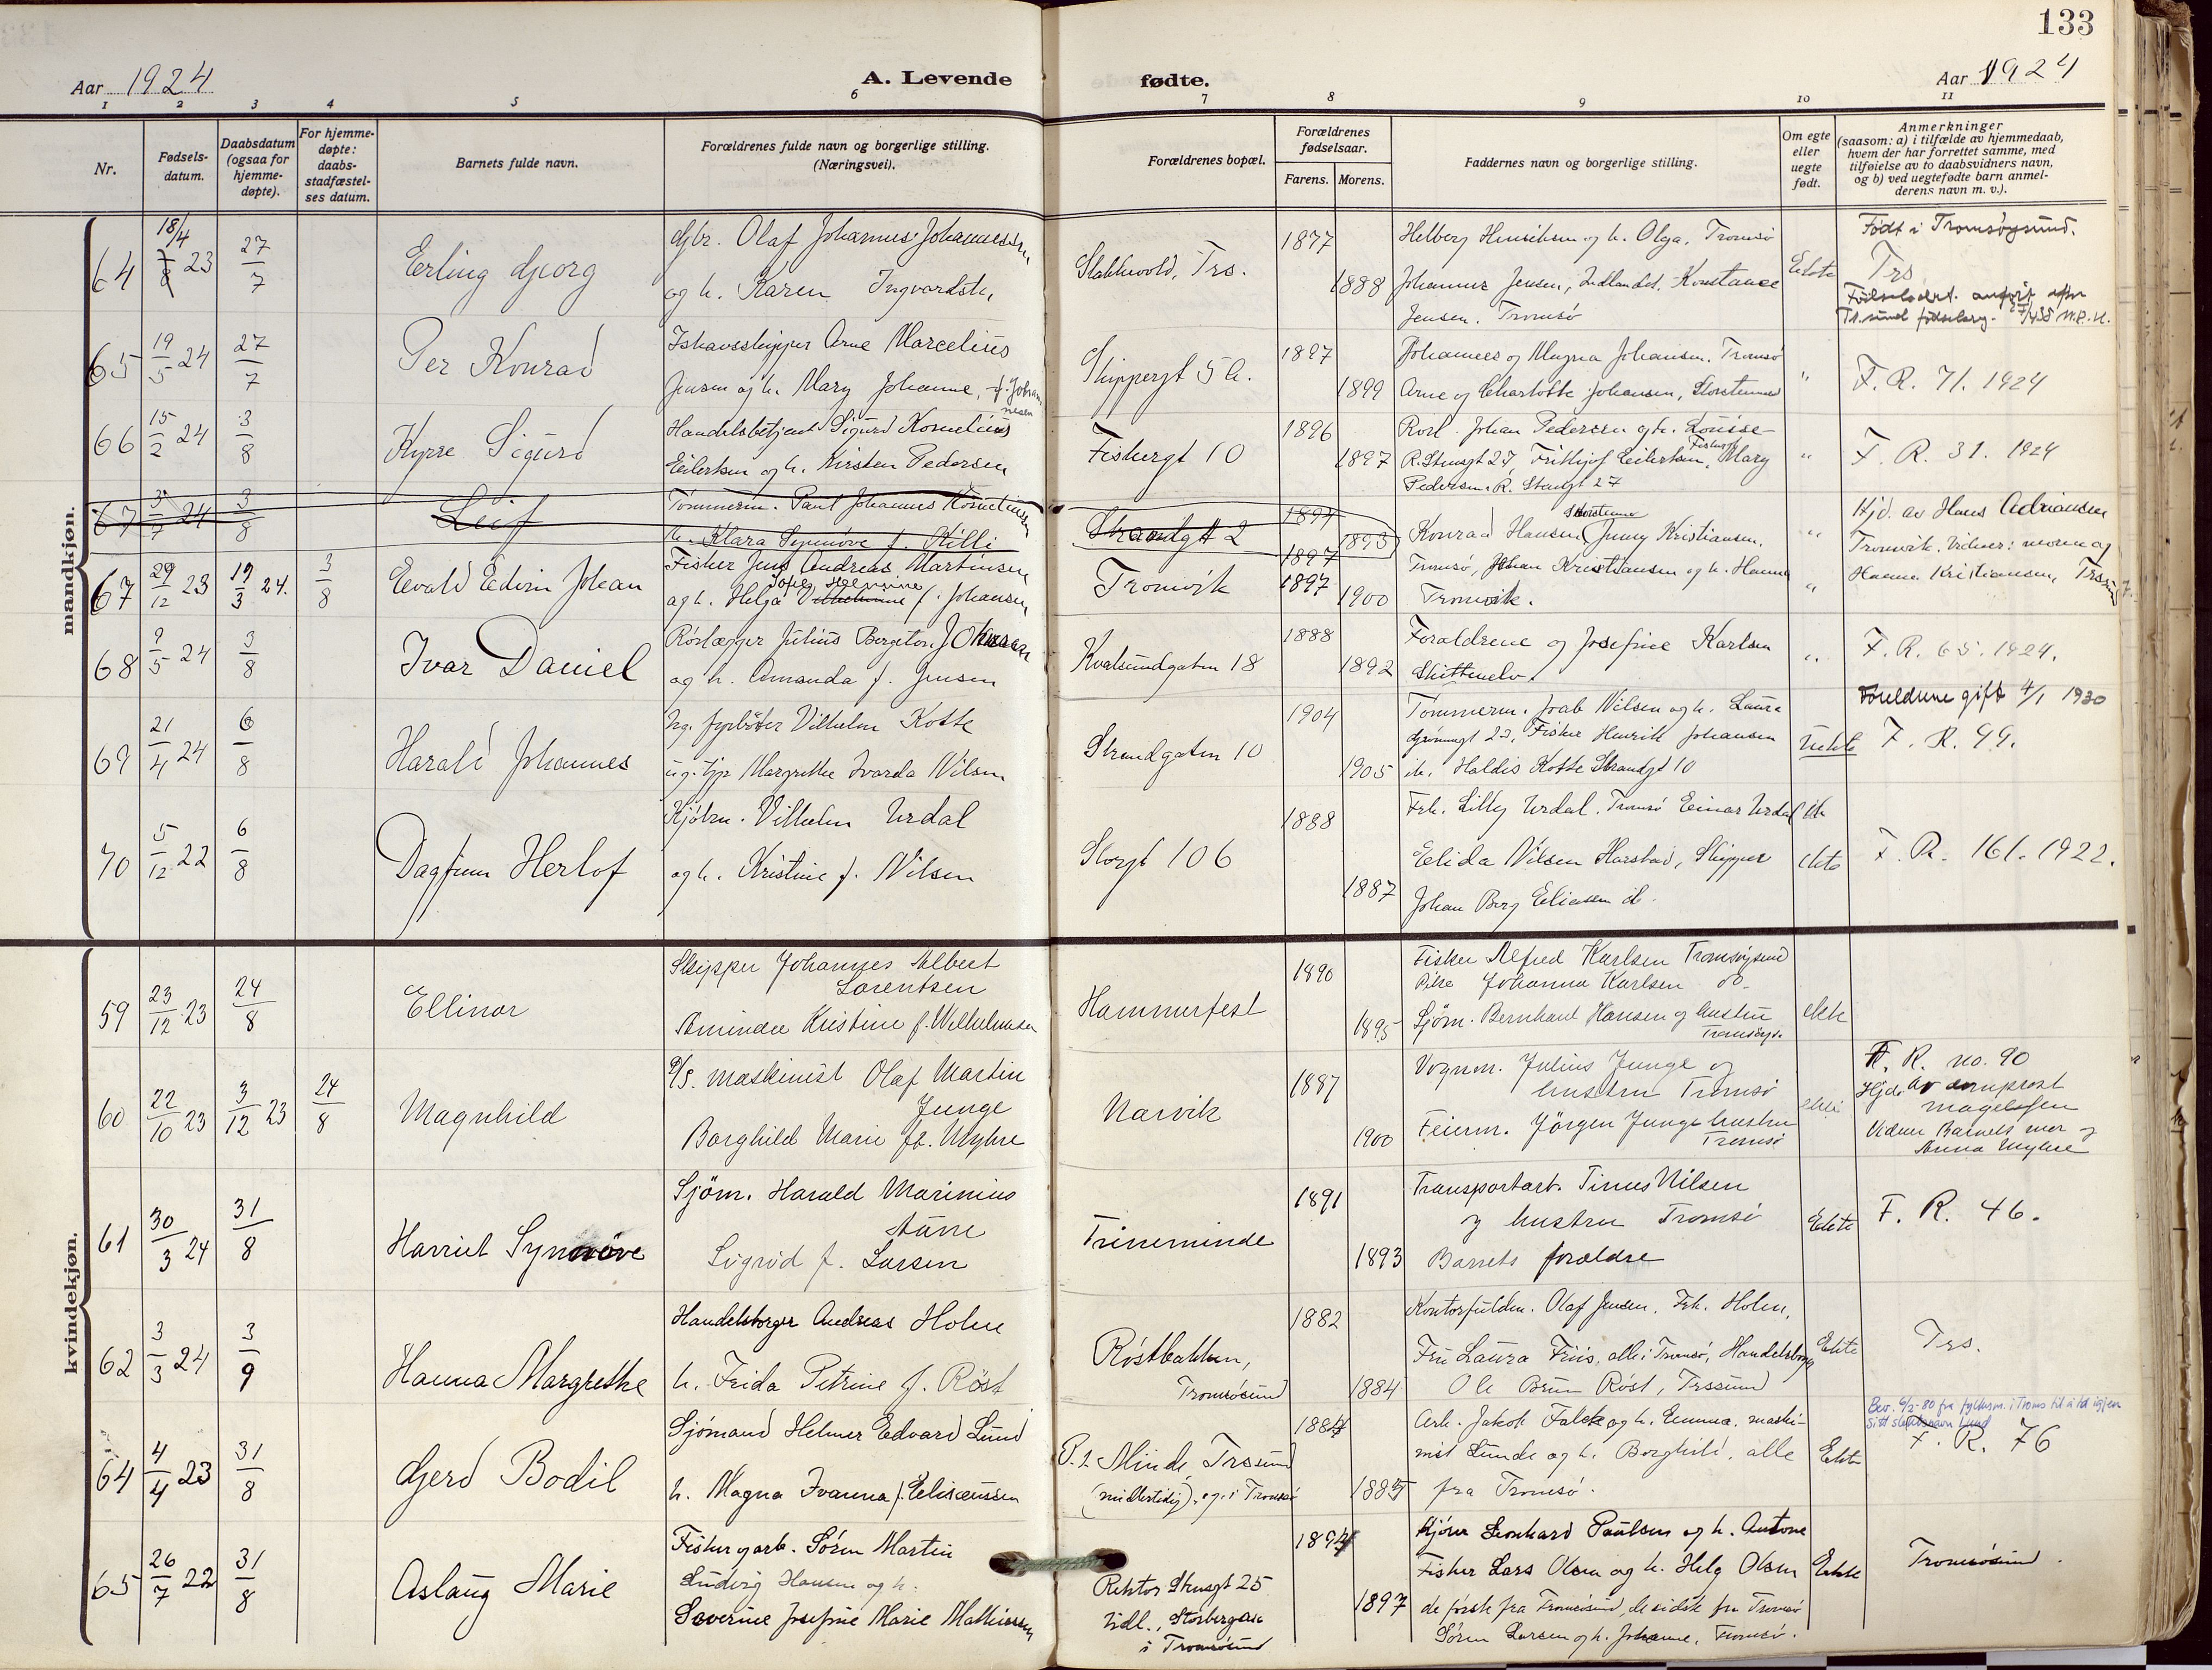 133
Aar 1924
A. Levende
fødte.
Aar 1924
1 2 3 4 5 6 7 8 9 10 11
Nr.
Fødsels-
datum.
Daabsdatum
(ogsaa for
hjemme-
døpte).
For hjemme-
døpte:
daabs-
stadfæstel-
ses datum.
Barnets fulde navn.
Forældrenes fulde navn og borgerlige stilling.
(Næringsvei).
Forældrenes bopæl.
Forældrenes
fødselsaar.
Farens. Morens.
Faddernes navn og borgerlige stilling.
Om egte
eller
uegte
født.
Anmerkninger
(saasom: a) i tilfælde av hjemmedaab,
hvem der har forrettet samme, med
tilføielse av to daabsvidners navn,
og b) ved uegtefødte barn anmel-
derens navn m. v.).
mandkjøn.
64
18/4 23
27/7
Erling Georg
Gbr. Olaf Johannes Johannessen
og h. Karen Ingvardsdtr.
Stakkevold, Trs.
1877
1888
Helberg Henriksen og h. Olga, Tromsø
Johannes Jensen, Indlandet, Konstance
Jensen. Tromsø
Ekte
Født i Tromsøysund.
Trs
65
19/5 24
27/7
Per Konrad
Ishavsskipper Arne Marcelius
Jensen og h. Mary Johanne, f. Johannesen
Skippergt 5 a.
1897
1899
Johannes og Magna Johansen. Tromsø
Arne og Charlotte Johansen, Storstennes
"
F. R. 71. 1924
66
15/2 24
3/8
Kyrre Sigurd
Handelsbetjent Sigurd Kornelius
Eilertsen og h. Kirsten Pedersen
Fiskergt 10
1896
1897
Rørl. Johan Pedersen og h. Louise
R. Strusgt 27, Frithjof Eilertsen, Fiskergt, Mary
Pedersen, R. Strusgt 27
"
F. R. 31. 1924
67
3/7 24
3/8
Leif
Tømmerm. Paul Johannes Kornelius
h. Klara Synnøve f. Killi
Strandgt 2
1893
"
67
29/12 23
19/3 24.
3/8
Evald Edvin Johan
Fisker Jens Andreas Martinsen
og h. Helga f. Johansen
Tromvik
1897
1900
Konrad Hansen, Jenny Kristiansen,
Tromsø, Johan Kristiansen og h. Hanna
Tromvik.
"
Hjd. av Hans Adriansen
Tromvik. Vidner: moren og
Hanna Kristiansen, Trssund
68
9/5 24
3/8
Ivar Daniel
Rørlægger Julius Bergeton Johnsen
og h. Amanda f. Jensen
Kvalsundgaten 18
1888
1892
Forældrene og Josefine Karlsen
Skittenelv.
"
F. R. 65. 1924.
69
21/4 24
6/8
Harald Johannes
Ug. fyrbøter Vilhelm Kotte
ug. Margrethe Ivarda Nilsen
Strandgaten 10
1904
1905
Tømmerm. Joab Nilsen og h. Laura
Grønnegt 23, Fisker Henrik Johansen
ib. Haldis Kotte Strandgt 10
Uekte
Foreldrene gift 4/1 1930
F. R. 99.
70
5/12 22
6/8
Dagfinn Herlof
Kjøbm. Vilhelm Urdal
og h. Kristine f. Nilsen
Storgt 106
1888
1887
Frk. Lilly Urdal. Tromsø Einar Urdal ib
Elida Nilsen Harstad, Skipper
Johan Berg Eliassen ib.
ekte
F. R. 161. 1922.
kvindekjøn.
59
23/12 23
24/8
Ellinor
Skipper Johannes Albert
Lorentsen
Aminda Kristine f. Wilhelmsen
Hammerfest
1890
1895
Fisker Alfred Karlsen Tromsøysund
Pike Johanna Karlsen do.
Sjøm. Bernhard Hansen og hustru
Tromsøys.
ekte
60
22/10 23
3/12 23
24/8
Magnhild
Maskinist Olaf Martin
Junge
Borghild Marie f. Myhre
Narvik
1887
1900
Vognm. Julius Junge og
hustru Tromsø
Feierm. Jörgen Junge hustru
Tromsø
ekte
F. R. no. 90
Hjd. av domprost
Magelssen
Vidner Barnets mor og
Anna Myhre
61
30/3 24
31/8
Harriet Synnöve
Sjöm. Harald Marinius
Sigrid f. Larsen
Trineminde
1891
1893
Transportarb. Tinus Nilsen
og hustru Tromsø
Barnets forældre
Ekte
F. R. 46.
62
3/3 24
3/9
Hanna Margrethe
Handelsborger Andreas Holm
h. Frida Petrine f. Röst
Röstbakken,
Tromsøsund
1882
1884
Kontorfuldm. Olaf Jensen, Frk. Holm,
Fru Laura Friis, alle i Tromsø, Handelsborg
Ole Brun Röst, Trssund
Ekte
Trs.
64
4/4 23
31/8
Gerd Bodil
Sjømand Helmer Edvard Lund
h. Magna Ivanna f. Eliseussen
P. t. Minde, Trssund
(midlertidig), og i Tromsø
1884
1885
Arb. Jakob Falck og h. Emma, maski-
nist Lunde og h. Borghild, alle
fra Tromsø.
Ekte
Bev. 6/2-80 fra fylkesm. i Troms til å ta igjen
sitt slektsnavn Lund
F. R. 76
65
26/7 22
31/8
Aslaug Marie
Fisker og arb. Søren Martin
Ludvig Hansen og h.
Severine Josefine Marie Mathisen
Rektor Strusgt 25
tidl., Storbergan
i Tromsøsund
1894
1897
Kjører Leonhard Paulsen og h. Antone
Fisker Lars Olsen og h. Helg Olsen
de første fra Tromsøsund, de sidste fra Tromsø
Søren Larsen og h. Johanne, Tromsø.
Ekte
Tromsøsund.